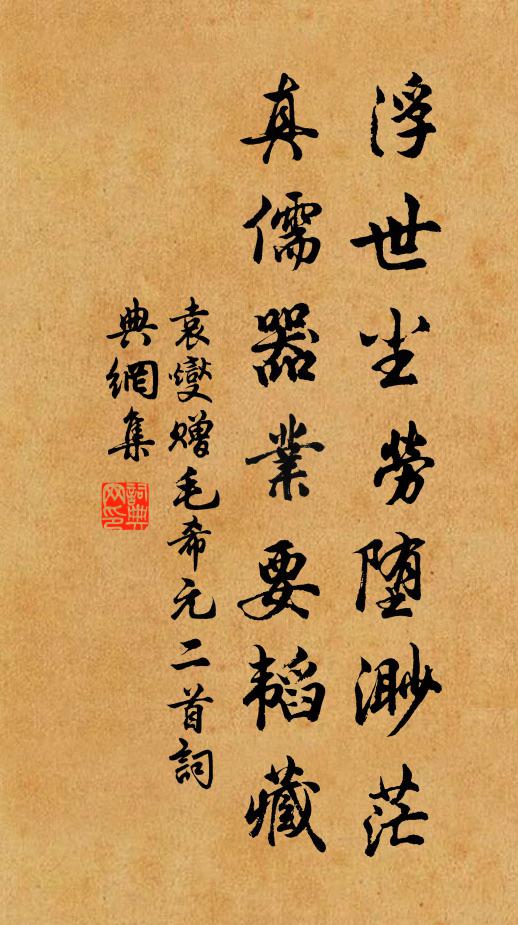 浮世尘劳堕渺茫
真儒器業要韜藏
袁燮贈毛希元二首詞
典網集
詞典
网印